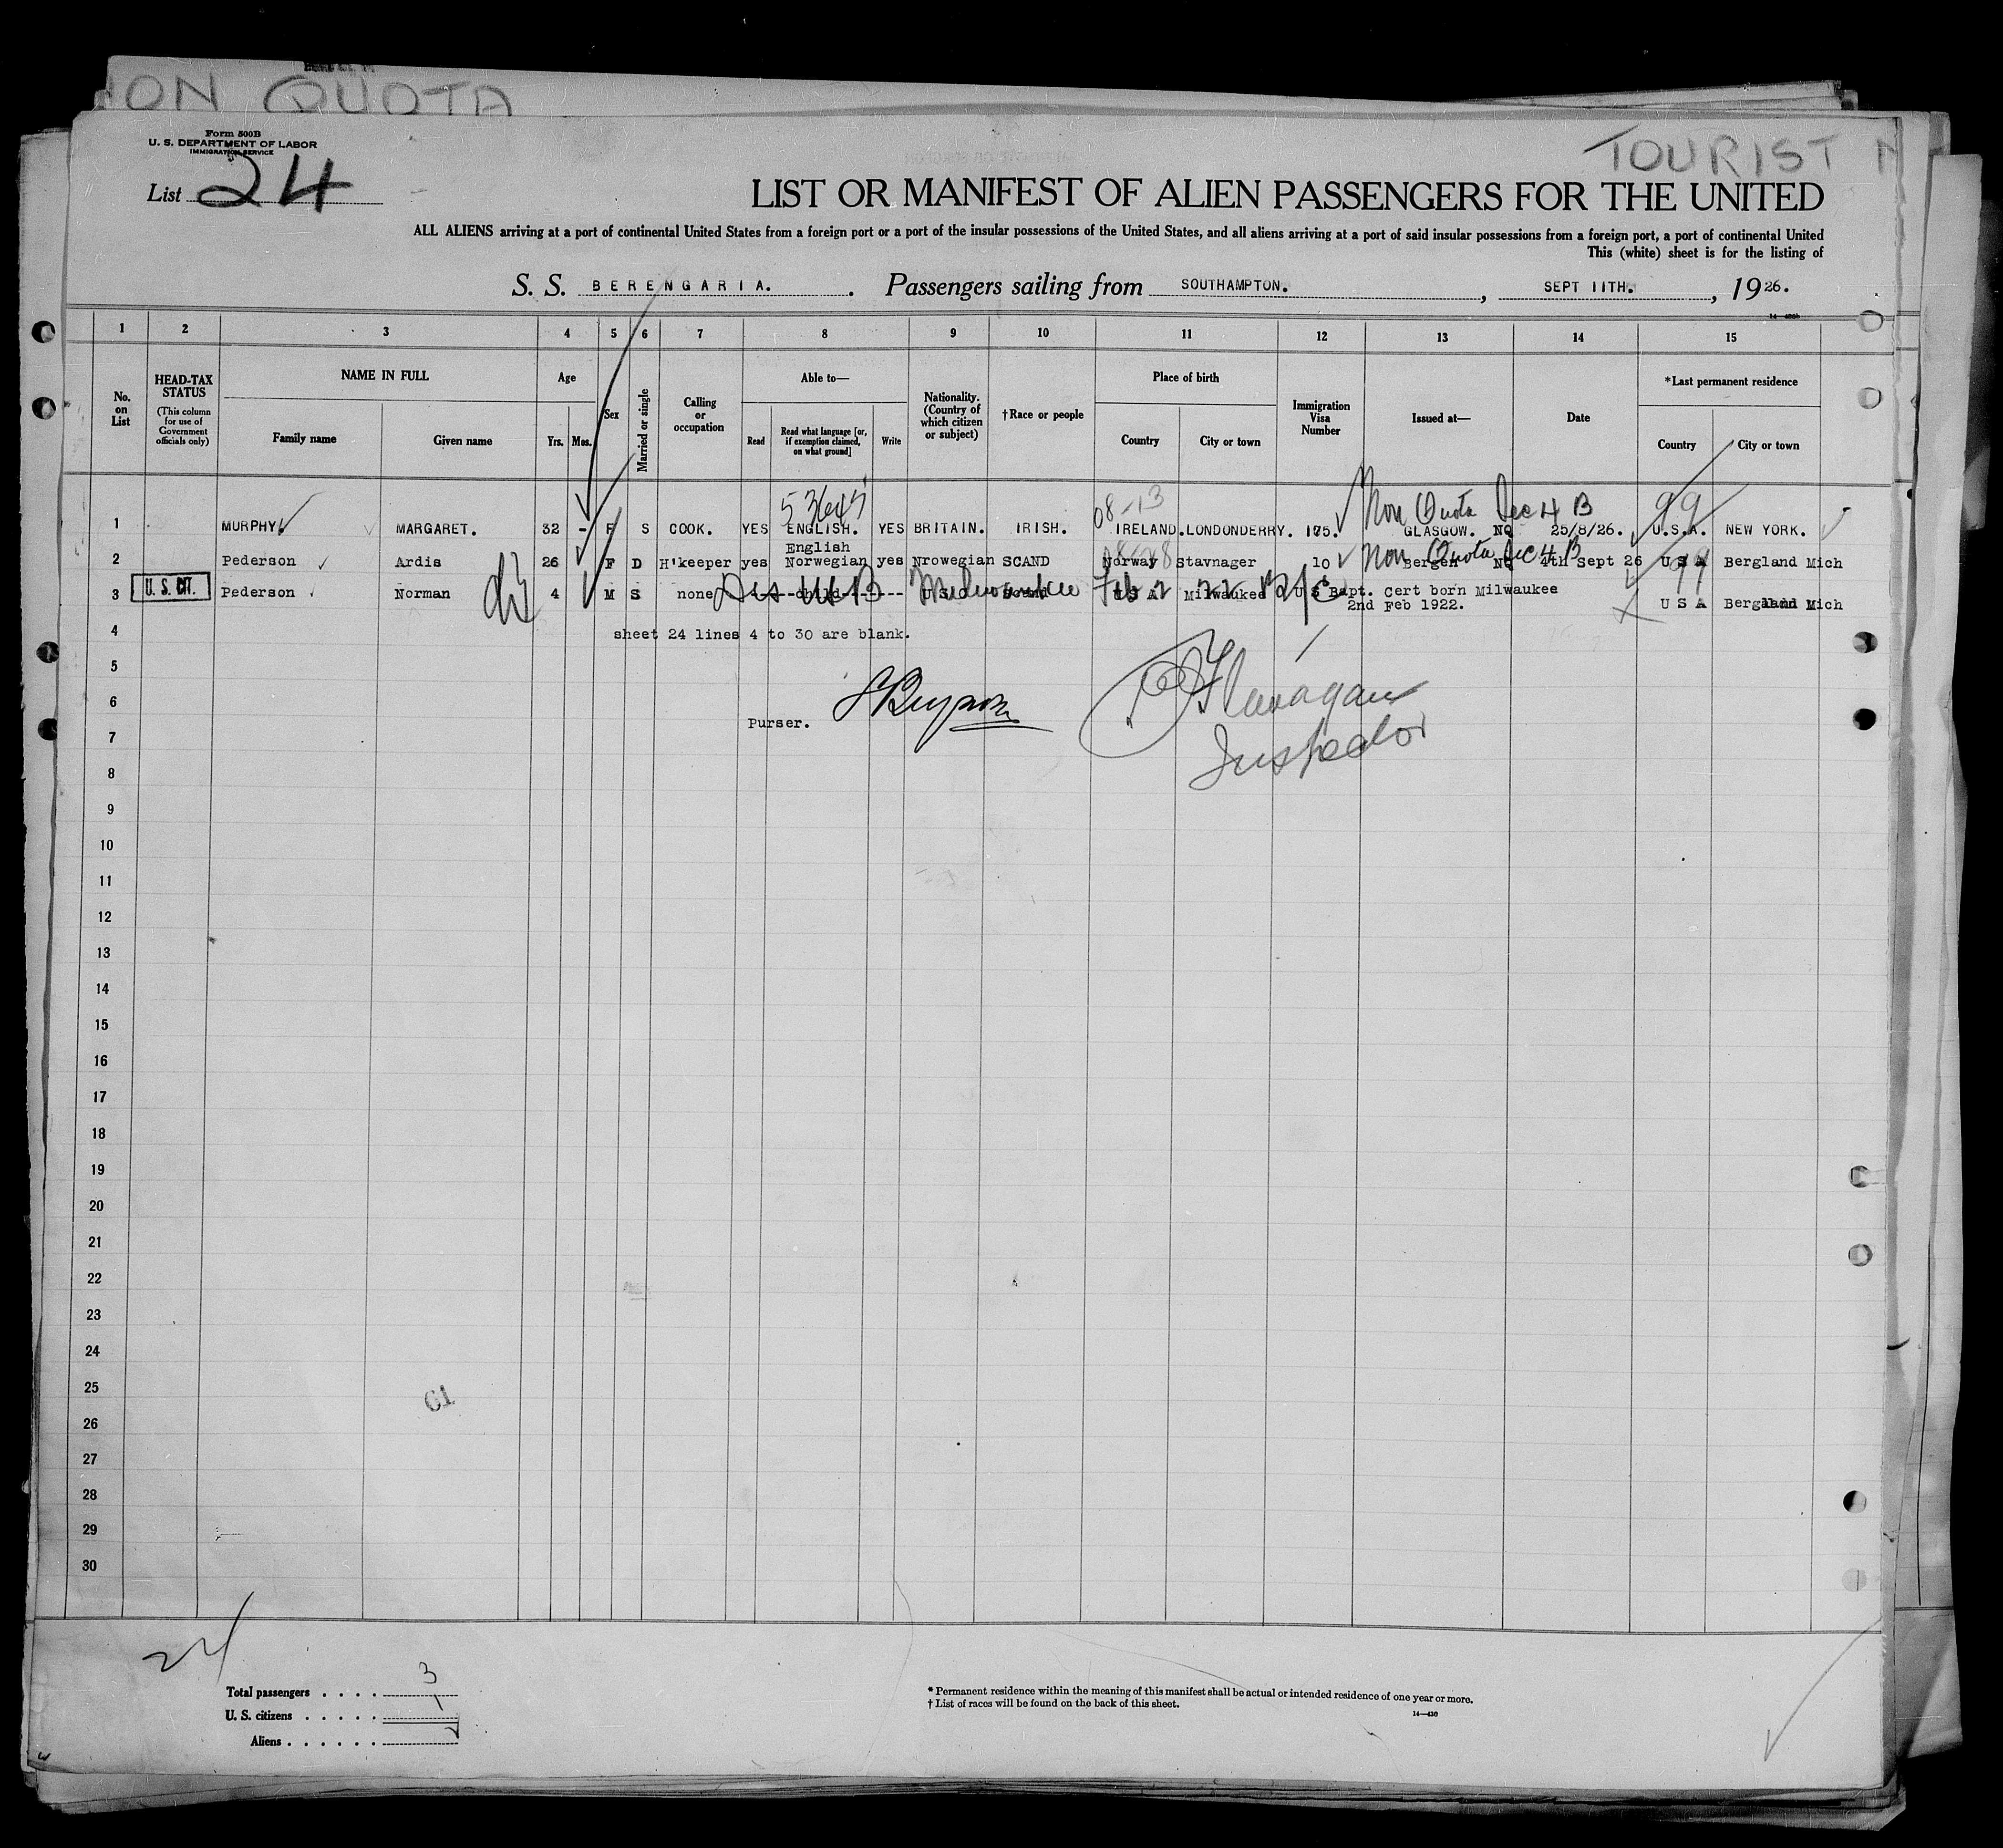 ON QUOTA
Form 500B
U. S. DEPARTMENT OF LABOR
IMMIGRATION SERVICE
TOURIST
List 24
LIST OR MANIFEST OF ALIEN PASSENGERS FOR THE UNITED
ALL ALIENS arriving at a port of continental United States from a foreign port or a port of the insular possessions of the United States, and all aliens arriving at a port of said insular possessions from a foreign port, a port of continental United
This (white) sheet is for the listing of
S. S. BERENGARIA. Passengers sailing from SOUTHAMPTON. , SEPT 11TH. , 1926.
1 2 3 4 5 6 7 8 9 10 11 12 13 14 15
No. on List
HEAD-TAX STATUS (This column for use of Government officials only)
NAME IN FULL Family name Given name
Age Yrs. Mos.
Sex
Married or single
Calling or occupation
Able to— Read Read what language [or, if exemption claimed, on what ground] Write
Nationality. (Country of which citizen or subject)
†Race or people
Place of birth Country City or town
Immigration Visa Number
Issued at—
Date
*Last permanent residence Country City or town
53645 08-13 Non Quota Sec 4 B 99
1 MURPHY MARGARET. 32 - F S COOK. YES ENGLISH. YES BRITAIN. IRISH. IRELAND. LONDONDERRY. 175. GLASGOW. NQ 25/8/26. U.S.A. NEW YORK.
English Non Quota Sec 4 B 99
2 Pederson Ardis 26 F D H'keeper yes Norwegian yes Nrowegian SCAND Norway Stavnager 10 Bergen NQ 4th Sept 26 U S A Bergland Mich
3 U. S. CIT. Pederson Norman 4 M S none child U S C Scand U S A Milwaukee U S Bapt. Cert born Milwaukee
2nd Feb 1922. U S A Bergland Mich
Milwaukee Feb 2 22 B/C
4 sheet 24 lines 4 to 30 are blank.
5
6
Purser.
Flanagan
Inspector
7
8
9
10
11
12
13
14
15
16
17
18
19
20
21
22
23
24
25
26
27
28
29
30
24
Total passengers . . . . 3
U. S. citizens . . . . . 1
Aliens . . . . . .
* Permanent residence within the meaning of this manifest shall be actual or intended residence of one year or more.
† List of races will be found on the back of this sheet.
14—430